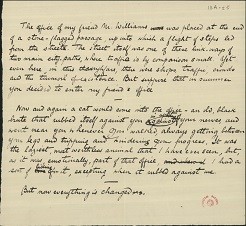 18A-45
The office of my friend Mr. Williams was placed at the end
of a stone-flagged passage, up into which a flight of steps led
from the streets. The street itself was one of those link-ways of
two main city parts, where traffic is by comparison small. Yet
even here in this downtown, there are shops, traffic winds
and the turmoil of existence. But suppose that in summer
you decided to enter my friend's office
Now and again a cat would come into the office - an old, black
brute that rubbed itself against you against your nerves and
went near you whenever you walked always getting between
your legs and tripping and hindering your progress. It was
the largest, most worthless animal that I have ever seen, but,
as it was, emotionally, part of that office I had a
sort of for it, excepting when it rubbed against me.
But now everything is changed